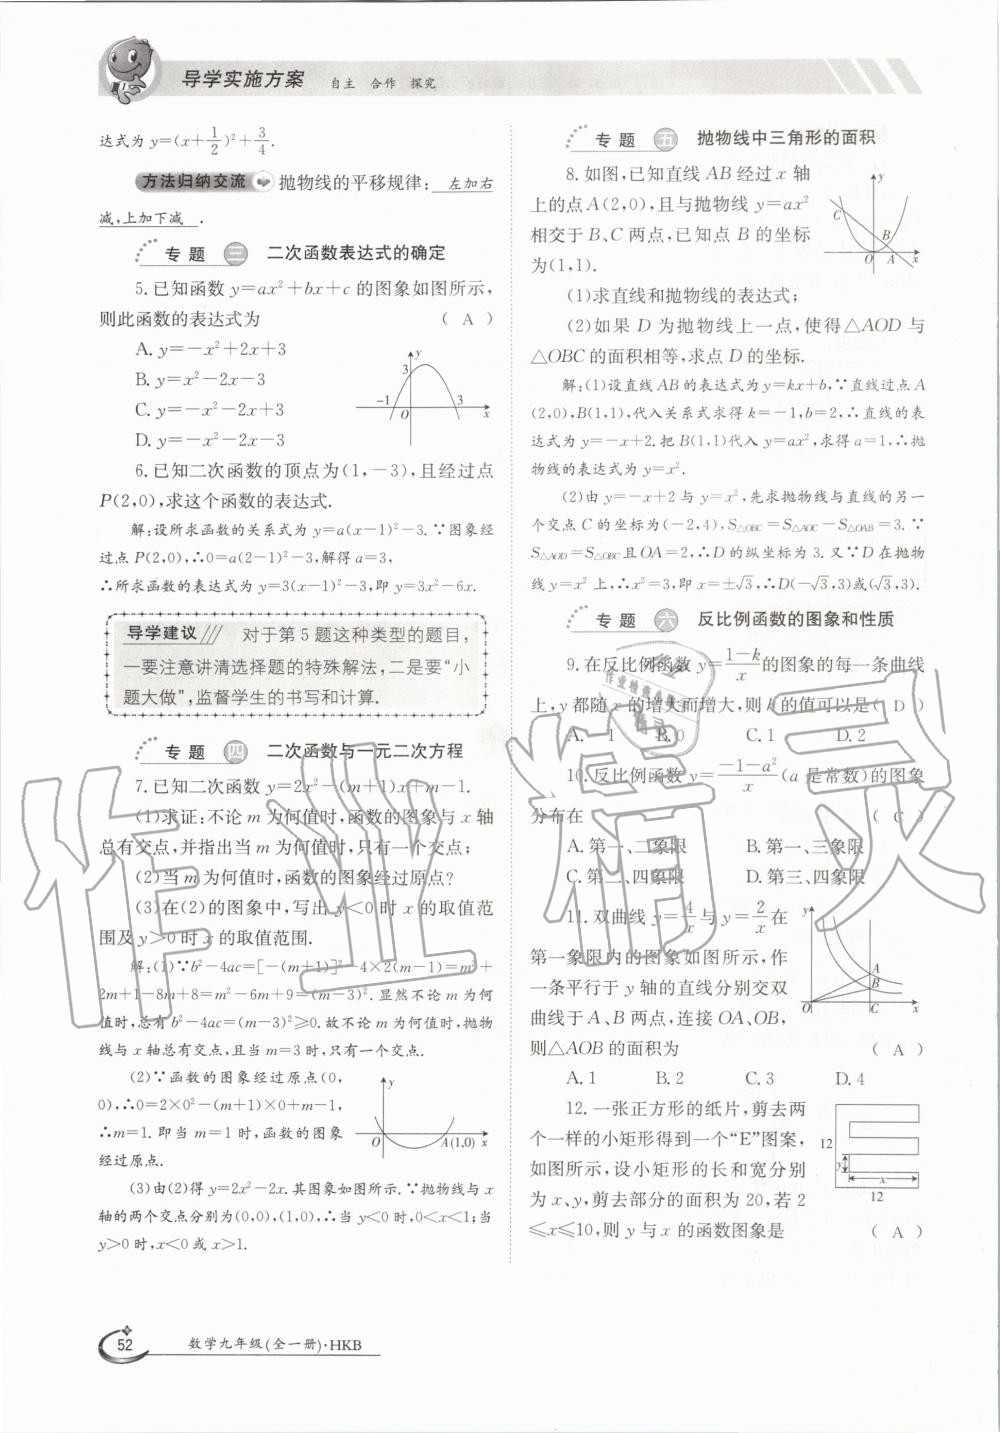 导学实施方案 自主 合作 探究
达式为 y=(x+1/2)²+3/4.
方法归纳交流 抛物线的平移规律: 左加右
减,上加下减 .
专题 三 二次函数表达式的确定
5.已知函数 y=ax²+bx+c 的图象如图所示,
则此函数的表达式为 ( A )
A. y=-x²+2x+3
B. y=x²-2x-3
C. y=-x²-2x+3
D. y=-x²-2x-3
y
3
-1 O 3 x
6.已知二次函数的顶点为(1,-3),且经过点
P(2,0),求这个函数的表达式.
解:设所求函数的关系式为 y=a(x-1)²-3.∵图象经
过点 P(2,0),∴0=a(2-1)²-3,解得 a=3,
∴所求函数的表达式为 y=3(x-1)²-3,即 y=3x²-6x.
导学建议 对于第 5 题这种类型的题目,
一要注意讲清选择题的特殊解法,二是要“小
题大做”,监督学生的书写和计算.
专题 四 二次函数与一元二次方程
7.已知二次函数 y=2x²-(m+1)x+m-1.
(1)求证:不论 m 为何值时,函数的图象与 x 轴
总有交点,并指出当 m 为何值时,只有一个交点;
(2)当 m 为何值时,函数的图象经过原点?
(3)在(2)的图象中,写出 y<0 时 x 的取值范
围及 y>0 时 x 的取值范围.
解:(1)∵b²-4ac=[-(m+1)]²-4×2(m-1)=m²+
2m+1-8m+8=m²-6m+9=(m-3)².显然不论 m 为何
值时,总有 b²-4ac=(m-3)²≥0.故不论 m 为何值时,抛物
线与 x 轴总有交点,且当 m=3 时,只有一个交点.
(2)∵函数的图象经过原点(0,
0),∴0=2×0²-(m+1)×0+m-1,
∴m=1.即当 m=1 时,函数的图象
经过原点.
y
O A(1,0) x
(3)由(2)得 y=2x²-2x.其图象如图所示.∵抛物线与 x
轴的两个交点分别为(0,0),(1,0),∴当 y<0 时,0<x<1;当
y>0 时,x<0 或 x>1.
专题 五 抛物线中三角形的面积
8.如图,已知直线 AB 经过 x 轴
上的点 A(2,0),且与抛物线 y=ax²
相交于 B、C 两点,已知点 B 的坐标
为(1,1).
y
C
B
O A x
(1)求直线和抛物线的表达式;
(2)如果 D 为抛物线上一点,使得△AOD 与
△OBC 的面积相等,求点 D 的坐标.
解:(1)设直线 AB 的表达式为 y=kx+b,∵直线过点 A
(2,0),B(1,1),代入关系式求得 k=-1,b=2,∴直线的表
达式为 y=-x+2.把 B(1,1)代入 y=ax²,求得 a=1,∴抛
物线的表达式为 y=x².
(2)由 y=-x+2 与 y=x²,先求抛物线与直线的另一
个交点 C 的坐标为(-2,4),S△OBC=S△AOC-S△OAB=3.∵
S△AOD=S△OBC且 OA=2,∴D 的纵坐标为 3.又∵D 在抛物
线 y=x² 上,∴x²=3,即 x=±√3,∴D(-√3,3)或(√3,3).
专题 六 反比例函数的图象和性质
9.在反比例函数 y=(1-k)/x 的图象的每一条曲线
上,y 都随 x 的增大而增大,则 k 的值可以是( D )
A. 1 B. 0 C. 1 D. 2
10.反比例函数 y=(-1-a²)/x (a 是常数)的图象
分布在 ( C )
A. 第一、二象限 B. 第一、三象限
C. 第二、四象限 D. 第三、四象限
11.双曲线 y=4/x 与 y=2/x 在
第一象限内的图象如图所示,作
一条平行于 y 轴的直线分别交双
曲线于 A、B 两点,连接 OA、OB,
则△AOB 的面积为 ( A )
y
A
B
O C x
A. 1 B. 2 C. 3 D. 4
12.一张正方形的纸片,剪去两
个一样的小矩形得到一个“E”图案,
如图所示,设小矩形的长和宽分别
为 x、y,剪去部分的面积为 20,若 2
≤x≤10,则 y 与 x 的函数图象是 ( A )
12
y
x
12
52 数学九年级(全一册)·HKB
作业精灵